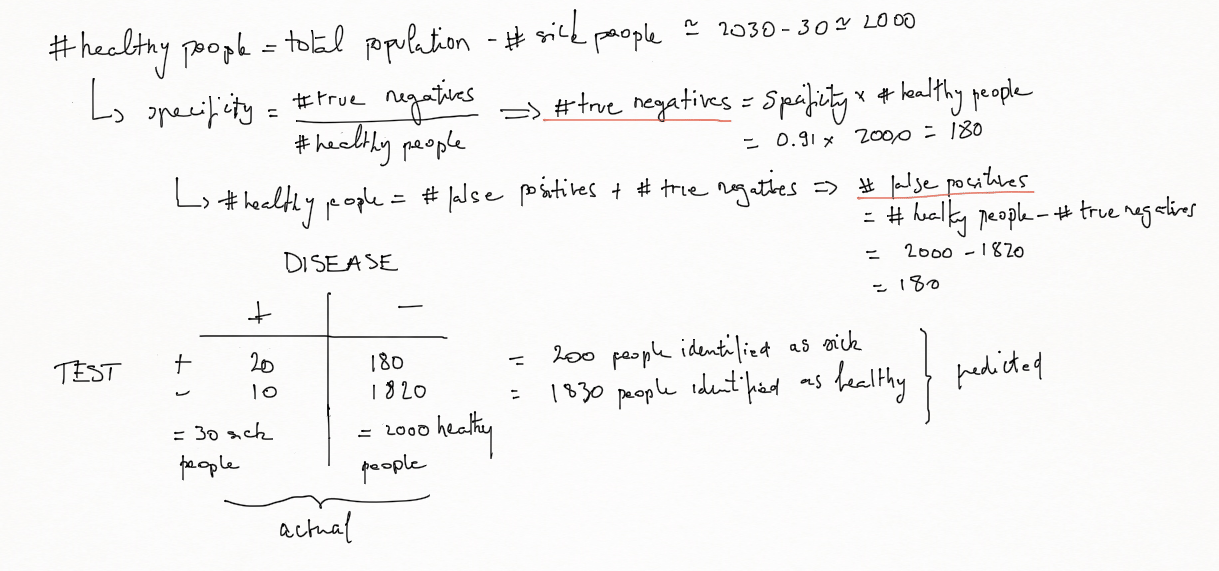 #healthy people = total population - # sick people ≃ 2030 - 30 ≃ 2000
↳ specificity = #true negatives / #healthy people ⟹ #true negatives = Specificity × # healthy people
= 0.91 × 2000 = 180
↳ #healthy people = # false positives + # true negatives ⇒ # false positives
= # healthy people - # true negatives
= 2000 - 1820
= 180
DISEASE
+ -
TEST + 20 180 = 200 people identified as sick
- 10 1820 = 1830 people identified as healthy } predicted
= 30 sick people = 2000 healthy people
actual